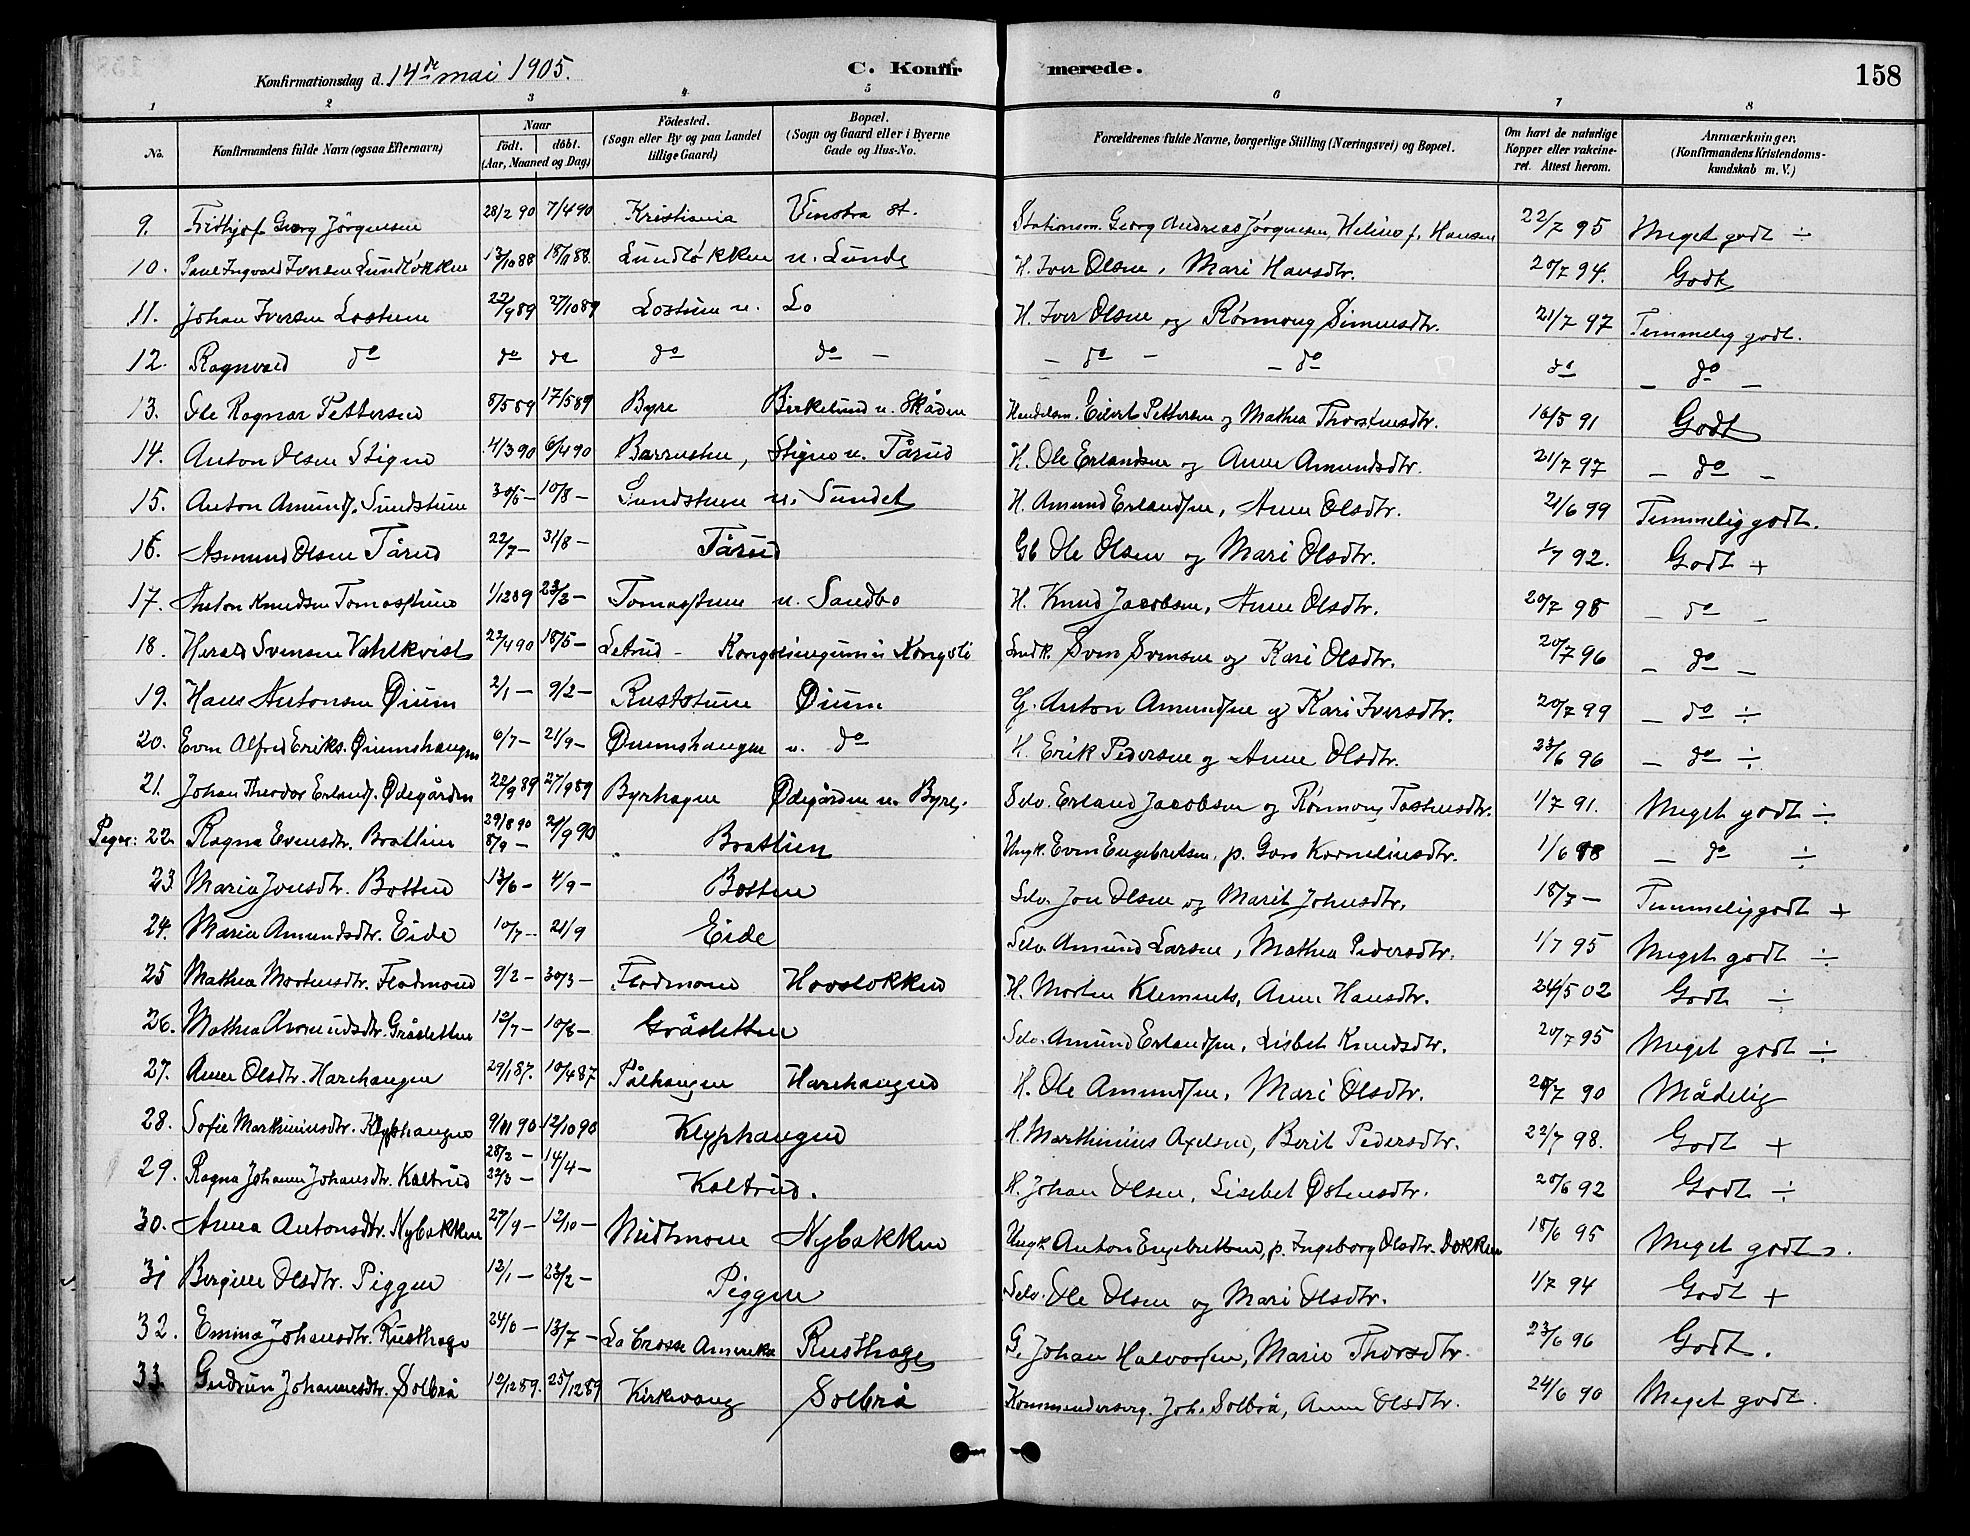 Konfirmationsdag d. 14de mai 1905. C. Konfirmerede. 158
1 2 3 4 5 6 7 8
No. Konfirmandens fulde Navn (ogsaa Efternavn) Naar födt. döbt. (Aar, Maaned og Dag) Födested. (Sogn eller By og paa Landet tillige Gaard) Bopæl. (Sogn og Gaard eller i Byerne Gade og Hus-No. Forældrenes fulde Navne, borgerlige Stilling (Næringsvei) og Bopæl. Om havt de naturlige Kopper eller vakcineret. Attest herom. Anmærkninger, (Konfirmandens Kristendomskundskab m. V.)
9. Frithjof Georg Jörgensen 28/2 90 7/4 90 Kristiania Vinstra st. Stationsm. Georg Andreas Jörgensen, Helene f. Hansen 22/7 95 Meget godt ÷
10. Paul Ingvald Iversen Lundløkken 13/10 88 18/11 88. Lundløkken u. Lunde H. Iver Olsen, Mari Hansdtr. 20/7 94. Godt
11. Johan Iversen Lostuen 22/9 89 27/10 89 Lostuen u. Lo H. Iver Olsen og Rønnoug Simensdtr. 21/7 97 Temmelig godt.
12. Ragnvald do do do do do – – do – – do do – do –
13. Ole Ragnar Pettersen 8/5 89 17/5 89 Byre Birkelund u. Skåden Handelsm. Eilert Pettersen og Mathea Thorstensdtr. 16/5 91 Godt
14. Anton Olsen Stigen 4/3 90 6/4 90 Barrusten, Stigen u. Tårud H. Ole Erlandsen og Anne Amundsdtr. 21/7 97 – do –
15. Anton Amundſ. Sundstuen 30/5 – 10/8 – Sundstuen u. Sundet H. Amund Erlandſen, Anne Olsdtr. 21/6 99 Temmelig godt.
16. Asmund Olsen Tårud 22/7 – 31/8 – Tårud Gb. Ole Olsen og Mari Olsdtr. 1/7 92. Godt +
17. Anton Knudsen Tomasstuen 1/12 89 23/2 – Tomasstuen u. Sandbo H. Knud Jacobsen, Anne Olsdtr. 20/7 98 – do –
18. Herald Svensen Vahlkvist 22/4 90 18/5 – Letrud – Kongsliengum u. Kongsli Smdk. Sven Svensen og Kari Olsdtr. 20/7 96 – do –
19. Hans Antonsen Øium 2/1 – 9/2 – Ruststuen Øium G. Anton Amundſen og Kari Iversdtr. 20/7 99 – do ÷
20. Even Alfred Eriks. Øiumshaugen 6/7 – 21/9 – Øiumshaugen u. do H. Erik Pedersen og Anne Olsdtr. 23/6 96 – do ÷
21. Johan Theodor Erlandſ. Ødegården 22/9 89 27/9 89 Byrhagen Ødegården u. Byre. Selv. Erland Jacobsen og Rønnoug Tostensdtr. 1/7 91. Meget godt ÷
Piger: 22. Ragna Evensdtr. Brattlien 29/8 90 8/9 – 21/9 90 Brattlien Ungk. Even Engebretsen, p. Goro Korneliusdtr. 1/6 98 – do ÷
23 Maria Jonsdtr. Botten 13/6 – 4/9 – Botten Selv. Jon Olsen og Marit Johnsdtr. 18/7 – Temmelig godt +
24. Marie Amundsdtr. Eide 10/7 – 21/9 Eide Selv. Amund Larsen, Mathea Pedersdtr. 1/7 95 Meget godt ÷
25 Mathea Mortensdtr. Flodmoen 9/2 – 30/3 – Flodmoen Hovsløkken H. Morten Klemmets, Anne Hansdtr. 24/5 02 Godt ÷
26. Mathea Amundsdtr. Gråsletten 12/7 – 10/8 – Gråsletten Selv. Amund Erlandſen, Lisbet Knudsdtr. 20/7 95 Meget godt ÷
27. Anne Olsdtr. Harehaugen 29/1 87. 10/4 87 Pålhaugen Harehaugen H. Ole Amundſen, Mari Olsdtr. 20/7 90 Mådelig
28. Sofie Marthiniusdtr. Klyphaugen 9/9 90 12/10 90 Klyphaugen H. Marthinius Axelsen, Berit Pedersdtr. 22/7 98. Godt +
29. Ragna Johanne Johansdtr. Koltrud 28/2 – 22/3 – 14/4 – Koltrud. H. Johan Olsen, Lisebet Østensdtr. 20/6 92 Godt ÷
30. Anna Antonsdtr. Nybakken 27/9 – 12/10 – Midtmoen Nybakken Ungk. Anton Engebretsen, p. Ingeborg Olsdtr. Dokken 18/6 95 Meget godt.
31 Bergine Olsdtr. Piggen 12/1 – 23/2 – Piggen Selv. Ole Olsen og Mari Olsdtr. 1/7 94 Godt +
32. Emma Johansdtr. Rusthage 24/6 – 13/7 – La Crosse Amerika Rusthage G. Johan Halvorſen, Marie Thorsdtr. 23/6 96 Godt.
33 Gudrun Johannesdtr. Solbrå 12/12 89. 25/12 89 Kirkevang Solbrå Kommendersrg. Joh. Solbrå, Anne Olsdtr. 24/6 90 Meget godt.